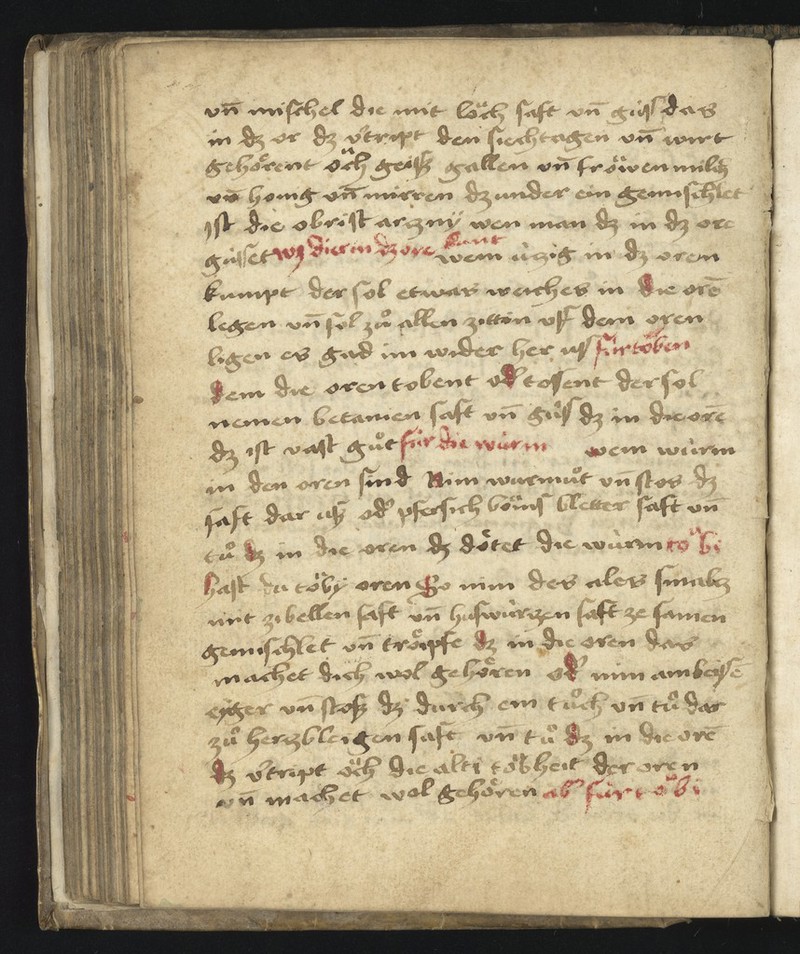 vn̄ mischel die mit löch saft vn̄ güß das
in dz or dz v'tript den siechtagen vn̄ wirt
gehörent öch geiß gallen vn̄ fröwen milch
vn̄ honig vn̄ mirren dz under ein gemischlet
ist die obrist arzny wen man dz in dz ore
güsset wz dier in dz ore kunt wem ützig in dz oren
kumpt der sol etwas weiches in die orē
legen vn̄ sol zů allen zittin vf dem oren
ligen es gad im wider her us für töben
dem die oren tobent od' tosent der sol
nemen betanien saft vn̄ güß dz in die orē
dz ist vast gůt für die würm wem würm
in den oren sind Nim wurmůt vn̄ stos dz
saft dar uß od' pfersich böms bletter saft vn̄
tů dz in die oren dz dötet die würm töbi
hast du töby oren So nim des ales smalz
mit zibellen saft vn̄ huswürzen saft ze samen
gemischlet vn̄ tröipfe dz in die oren das
machet dich wol gehören od' nim ambeissē
eyger vn̄ stoß dz durch ein tůch vn̄ tů dar
zů herzbleigen saft vn̄ tů dz in die orē
dz v'tript öch die alti töbheit der oren
vn̄ machet wol gehören ab' für töbi